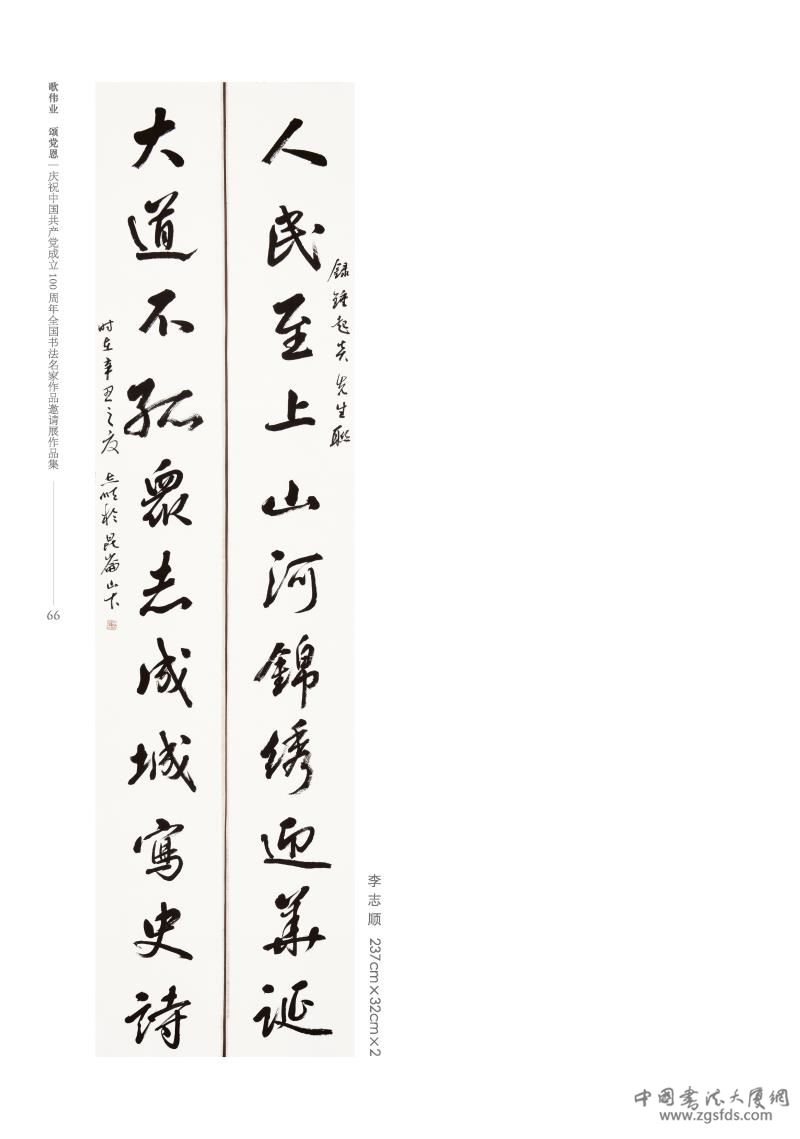 歌伟业　颂党恩 | 庆祝中国共产党成立100周年全国书法名家作品邀请展作品集
66
人民至上山河錦绣迎華誕
録鍾起炎先生聯
大道不孤衆志成城寫史詩
时在辛丑之夏 志顺於昆崙山下
李志顺 237cm×32cm×2
中国书法大厦網
www.zgsfds.com